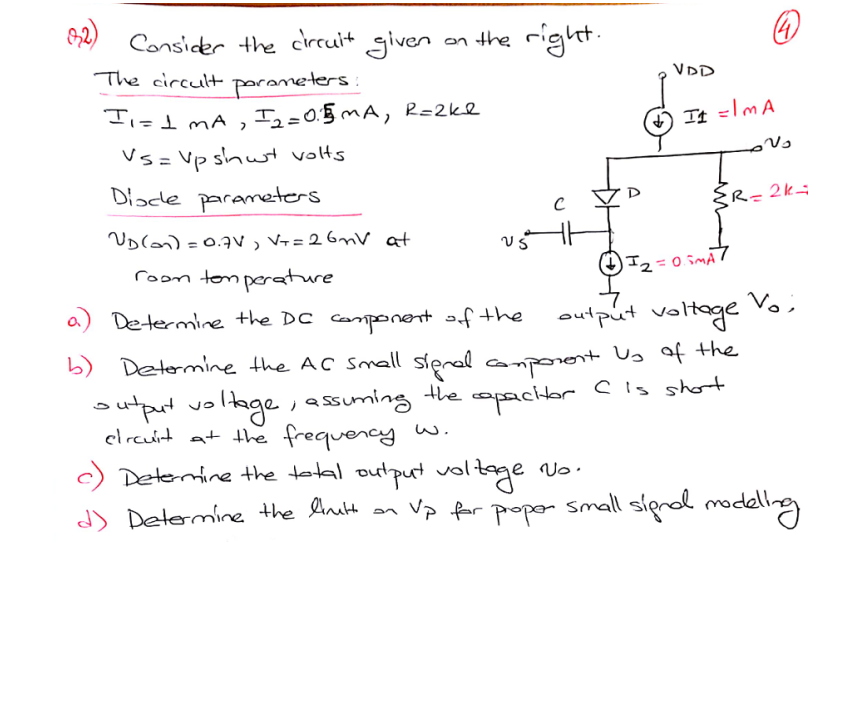 Q2) Consider the circuit given on the right.
4
The circuit parameters:
I1 = 1 mA, I2 = 0.5 mA, R = 2kΩ
Vs = Vp sinwt volts
Diode parameters
VD(on) = 0.7V, VT = 26mV at
room temperature
VDD
I1 = 1mA
vo
D
R = 2k
C
vs
I2 = 0.5mA
a) Determine the DC component of the output voltage Vo;
b) Determine the AC small signal component vo of the
output voltage, assuming the capacitor C is short
circuit at the frequency w.
c) Determine the total output voltage vo.
d) Determine the limit on Vp for proper small signal modelling